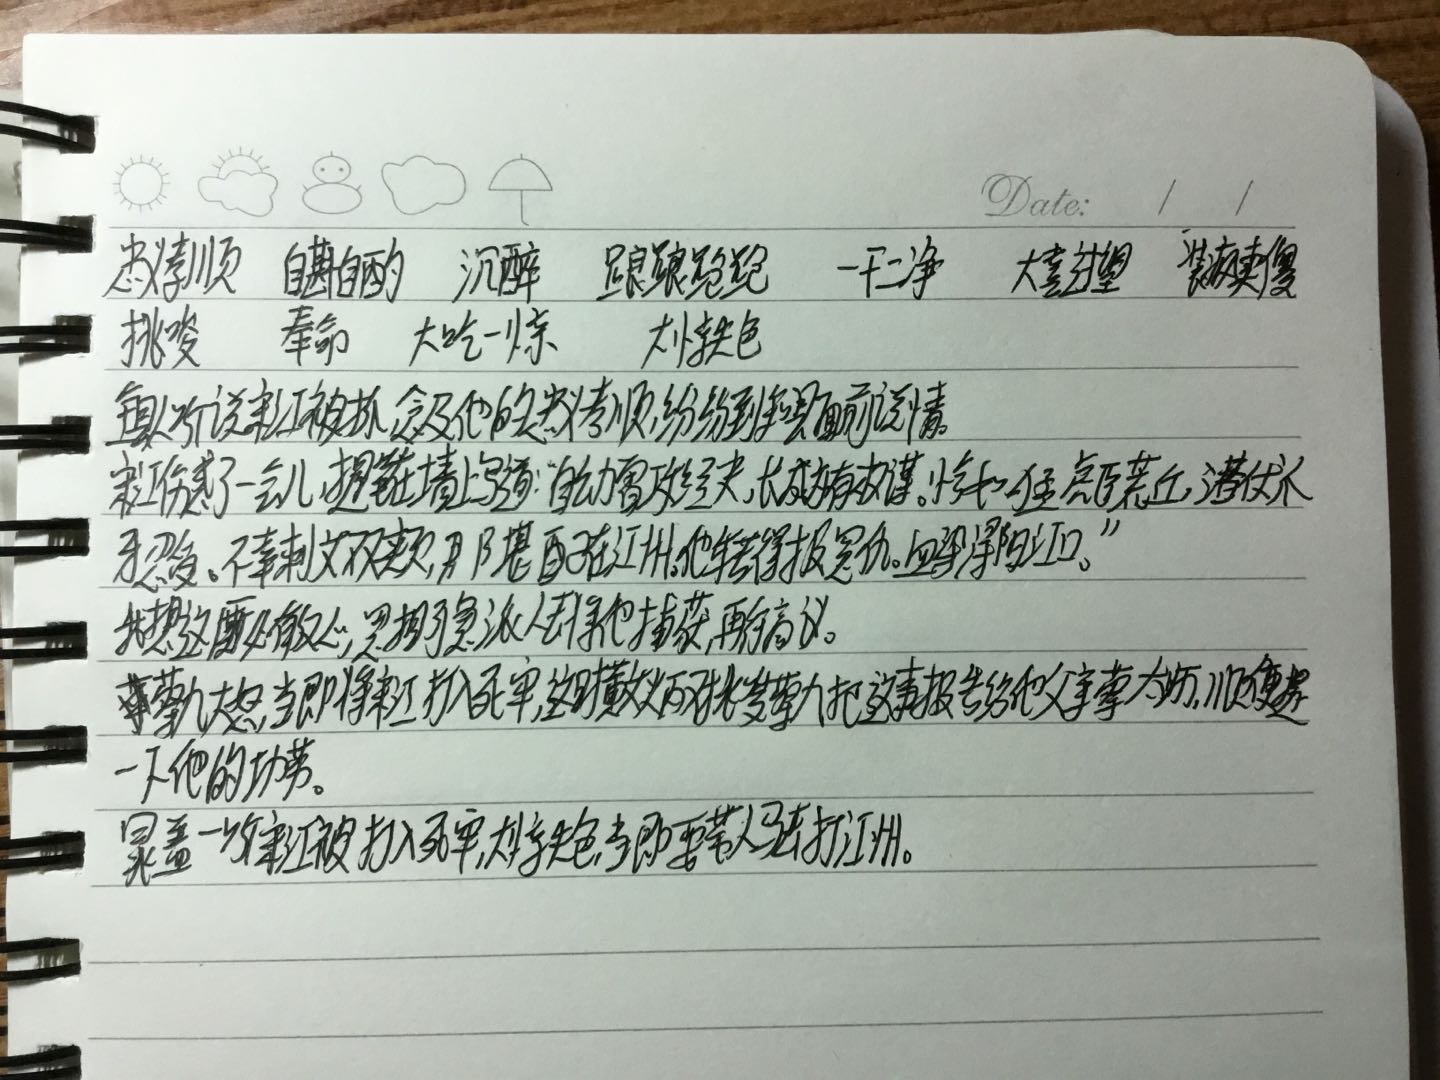 Date: / /
忠义孝顺 自斟自酌 沉醉 踉踉跄跄 一干二净 大喜过望 装疯卖傻
挑唆 奉命 大吃一惊 大惊失色
县人听说宋江被抓,念及他的忠义孝顺,纷纷到知县面前说情。
宋江伤感了一会儿,提笔在墙上写道:“自幼曾攻经史,长成亦有权谋。恰如猛虎卧荒丘,潜伏爪
牙忍受。不幸刺文双颊,那堪配在江州。他年若得报冤仇。血染浔阳江口。”
我想这必,派人去将他捕获,再行商议。
蔡九大怒,当即将宋江打入死牢,这时黄文炳又挑唆蔡九把这事报告给他父亲蔡太师,顺便提
一下他的功劳。
晁盖一听宋江被打入死牢,大惊失色,当即要带人马去打江州。